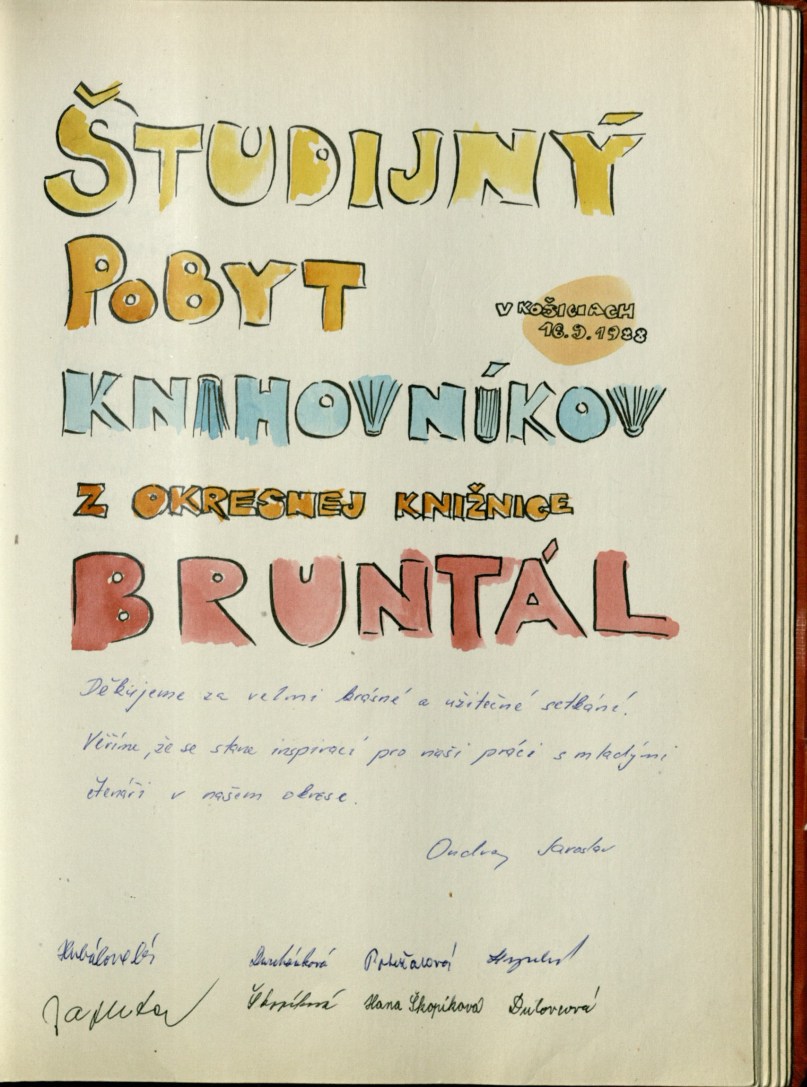 ŠTUDIJNÝ
POBYT
V KOŠICIACH
16.9.1988
KNIHOVNÍKOV
Z OKRESNEJ KNIŽNICE
BRUNTÁL
Děkujeme za velmi krásné a užitečné setkání.
Věříme, že se stane inspirací pro naši práci s mladými
čtenáři v našem okrese.
Ondrej Jaroslav
Škopíková Hana Škopíková